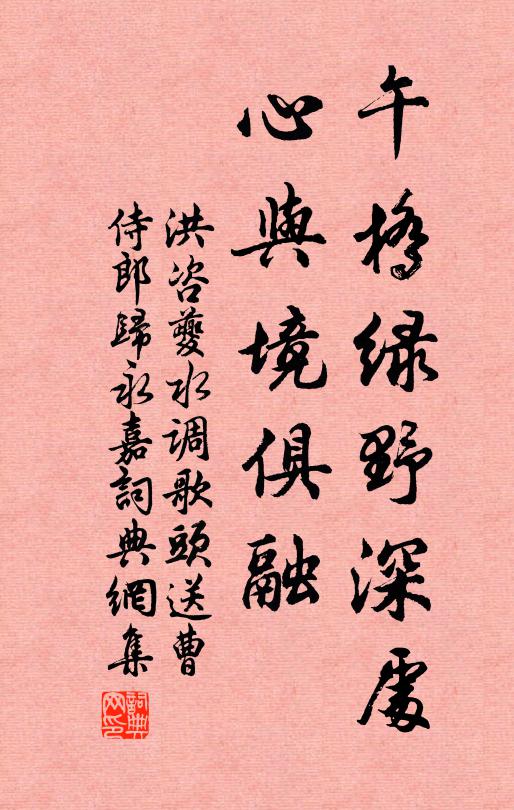 午橋緑野深處
心與境俱融
洪咨夔水调歌頭送曹
侍郎歸永嘉詞典網集
詞典网印